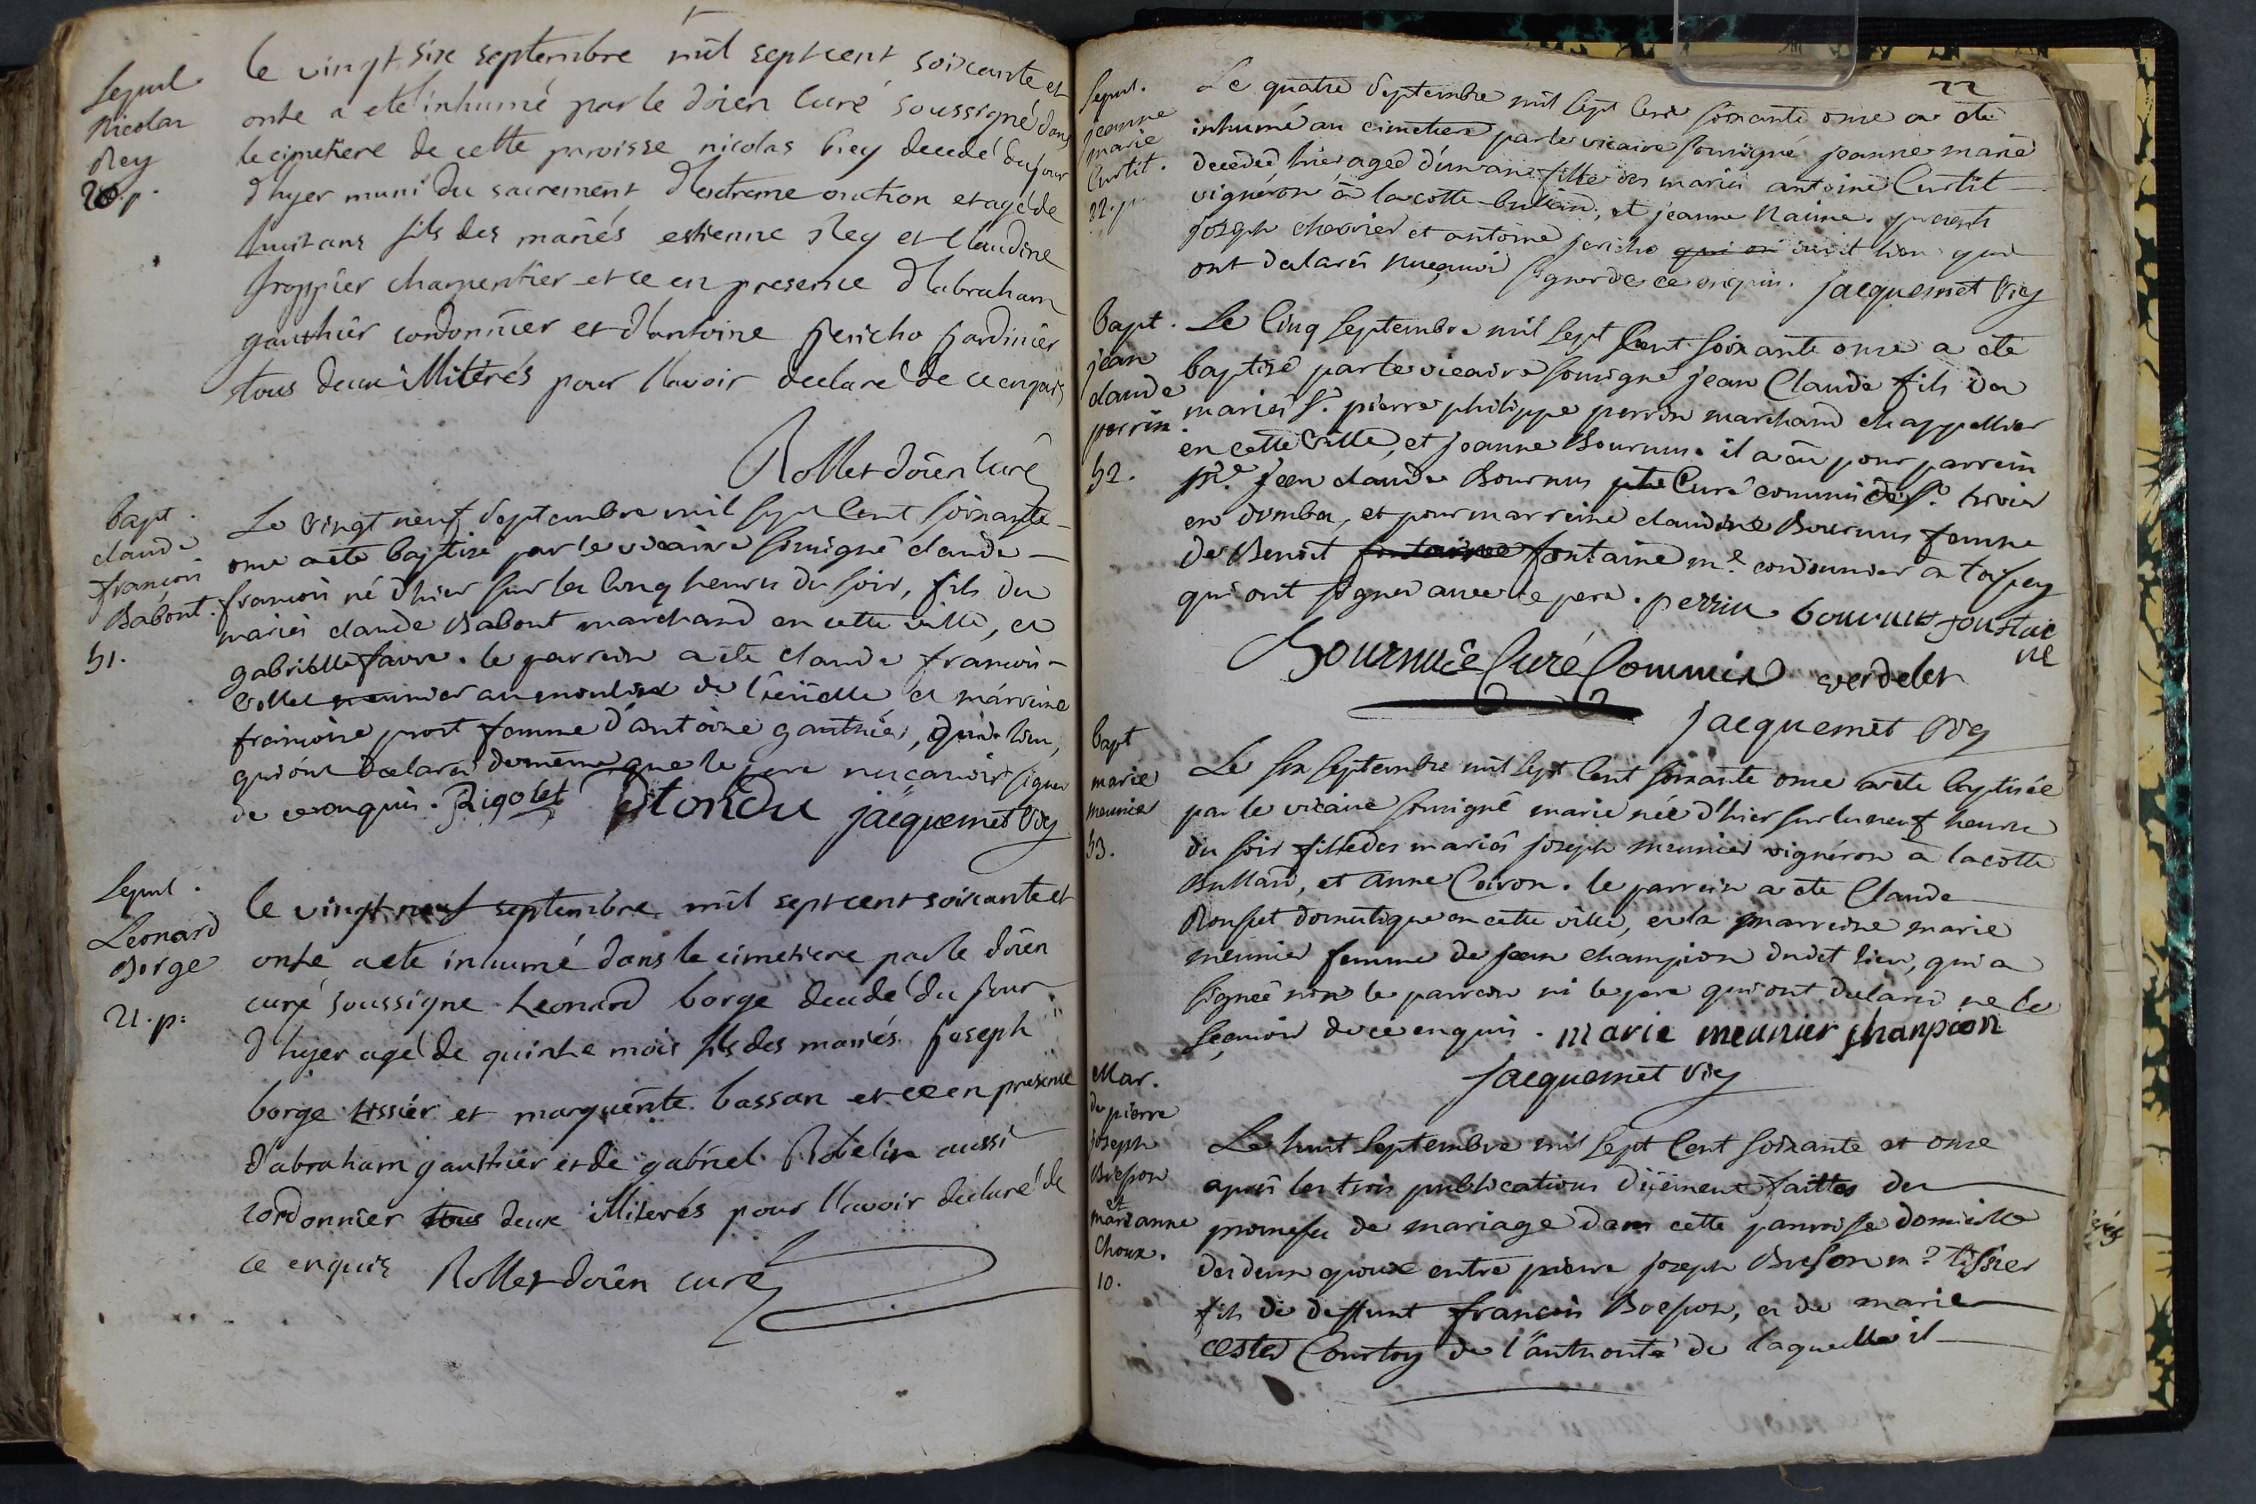 Sepul.
Nicolas
Rey
20. p.
le vingt six septembre mil sept cent soixante et
onze a eté inhumé par le doïen curé soussigné dans
le cimetiere de cette paroisse nicolas Rey decedé du jour
d'hyer muni du sacrement d'extreme onction et agé de
huit ans fils des mariés estienne Rey et claudine
froppier charpentier et ce en presence d'abraham
gauthier cordonnier et d'antoine jericho jardinier
tous deux illiterés pour l'avoir declaré de ce enquis
Rollet doïen curé
bapt.
claude
françois
Babout.
51.
Le vingt neuf septembre mil sept cent soixante
onze a été baptisé par le vicaire soussigné claude
françois né d'hier sur les cinq heures du soir, fils des
mariés claude Babout marchand en cette ville, et
gabrielle favre. le parrein a été claude françois
Collet meunier au moulin de et marreine
françoise prost femme d'antoine gauthier, dud. lieu,
qui ont declarés de même que le pere ne sçavoir signer
de ce enquis. Rigolet Tondu jacquemet vic
Sepul.
Leonard
Borge
21. p.
le vingt neuf septembre mil sept cent soixante et
onze a eté inhumé dans le cimetiere par le doïen
curé soussigne Leonard borge decedé du jour
d'hyer agé de quinze mois fils des mariés joseph
borge tissier et marguerite bassan et ce en presence
d'abraham gauthier et de gabriel Robelin aussi
cordonnier tous deux illiterés pour l'avoir declaré de
ce enquis Rollet doïen curé
22
Sepul.
jeanne
marie
Curtit.
22. p.
Le quatre septembre mil sept cent soixante onze a été
inhumé au cimetiere par le vicaire soussigné jeanne marie
decedée hier agée d'un an fille des mariés antoine Curtit
vigneron à la cotte et jeanne Naime. presents
joseph chevrier et antoine jericho qui on dudit lieu qui
ont declarés ne sçavoir signer de ce enquis. jacquemet vic
bapt.
jean
claude
perrin.
52.
Le cinq septembre mil sept cent soixante onze a été
baptisé par le vicaire soussigné jean Claude fils des
mariés Sr. pierre philippe perrin marchand chappellier
en cette ville, et jeanne Bournus. il a eu pour parrein
Mre. jean claude Bournus ptre Curé commis de St. trivier
en dombes, et pour marreine claudine Bournus femme
de Benoit fontaine fontaine me. cordonnier a toissey
qui ont signés avec le pere. perrin bournus fonstai
ne
Bournus Curé Commis verdelet
jacquemet vic
bapt
marie
meunier
53.
Le six septembre mil sept cent soixante onze a été baptisée
par le vicaire soussigné marie née d'hier sur les neuf heures
du soir fille des mariés joseph meunier vigneron à la cotte
Bulland, et anne Coron. le parrein a été Claude
Rousset domestique en cette ville, et la marreine marie
meunier femme de jean champion dudit lieu, qui a
signée non le parrein ni le pere qui ont declarés ne le
sçavoir de ce enquis. marie meunier chanpion
jacquemet vic
Mar.
de pierre
joseph
Bresson
et
marianne
Choux.
10.
Le huit septembre mil sept cent soixante et onze
après les trois publications düement faittes des
promesses de mariage dans cette parroisse domicille
des deux epoux entre pierre joseph Bresson me. tissier
fils de deffunt françois Bresson, et de marie
ester Courtoy de l'authorité de laquelle il